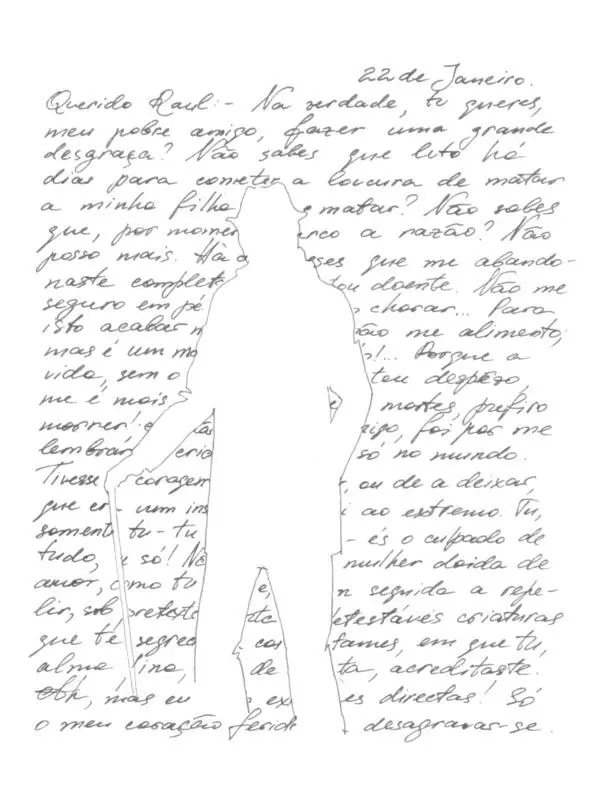 22 de Janeiro.
Querido Raul: - Na verdade, tu queres,
meu pobre amigo, fazer uma grande
desgraça? Não sabes que luto há
dias para cometer a loucura de matar
a minha filha e matar? Não sabes
que, por momen erco a razão? Não
posso mais. Há eses que me abando-
naste complete tou doente. Não me
seguro em pé chorar... Para
isto acabar n não me alimento;
mas é um mo !... Porque a
vida, sem o tou desprezo,
me é mais e mortes, prefiro
morrer! tas igo, foi por me
lembrar cria só no mundo.
Tivesse coragem , ou de a deixar,
que er um ins i ao extremo. Tu,
soment tu - tu - és o culpado de
tudo, só! Nã mulher doida de
amor, como tu e, n seguida a repe-
lir, sob pretexto te etestáveis criaturas
que te segreda cas fames, em que tu,
alma fina, de ta, acreditaste.
mas eu exi es directas! Só
o meu coração ferid desagravar-se.